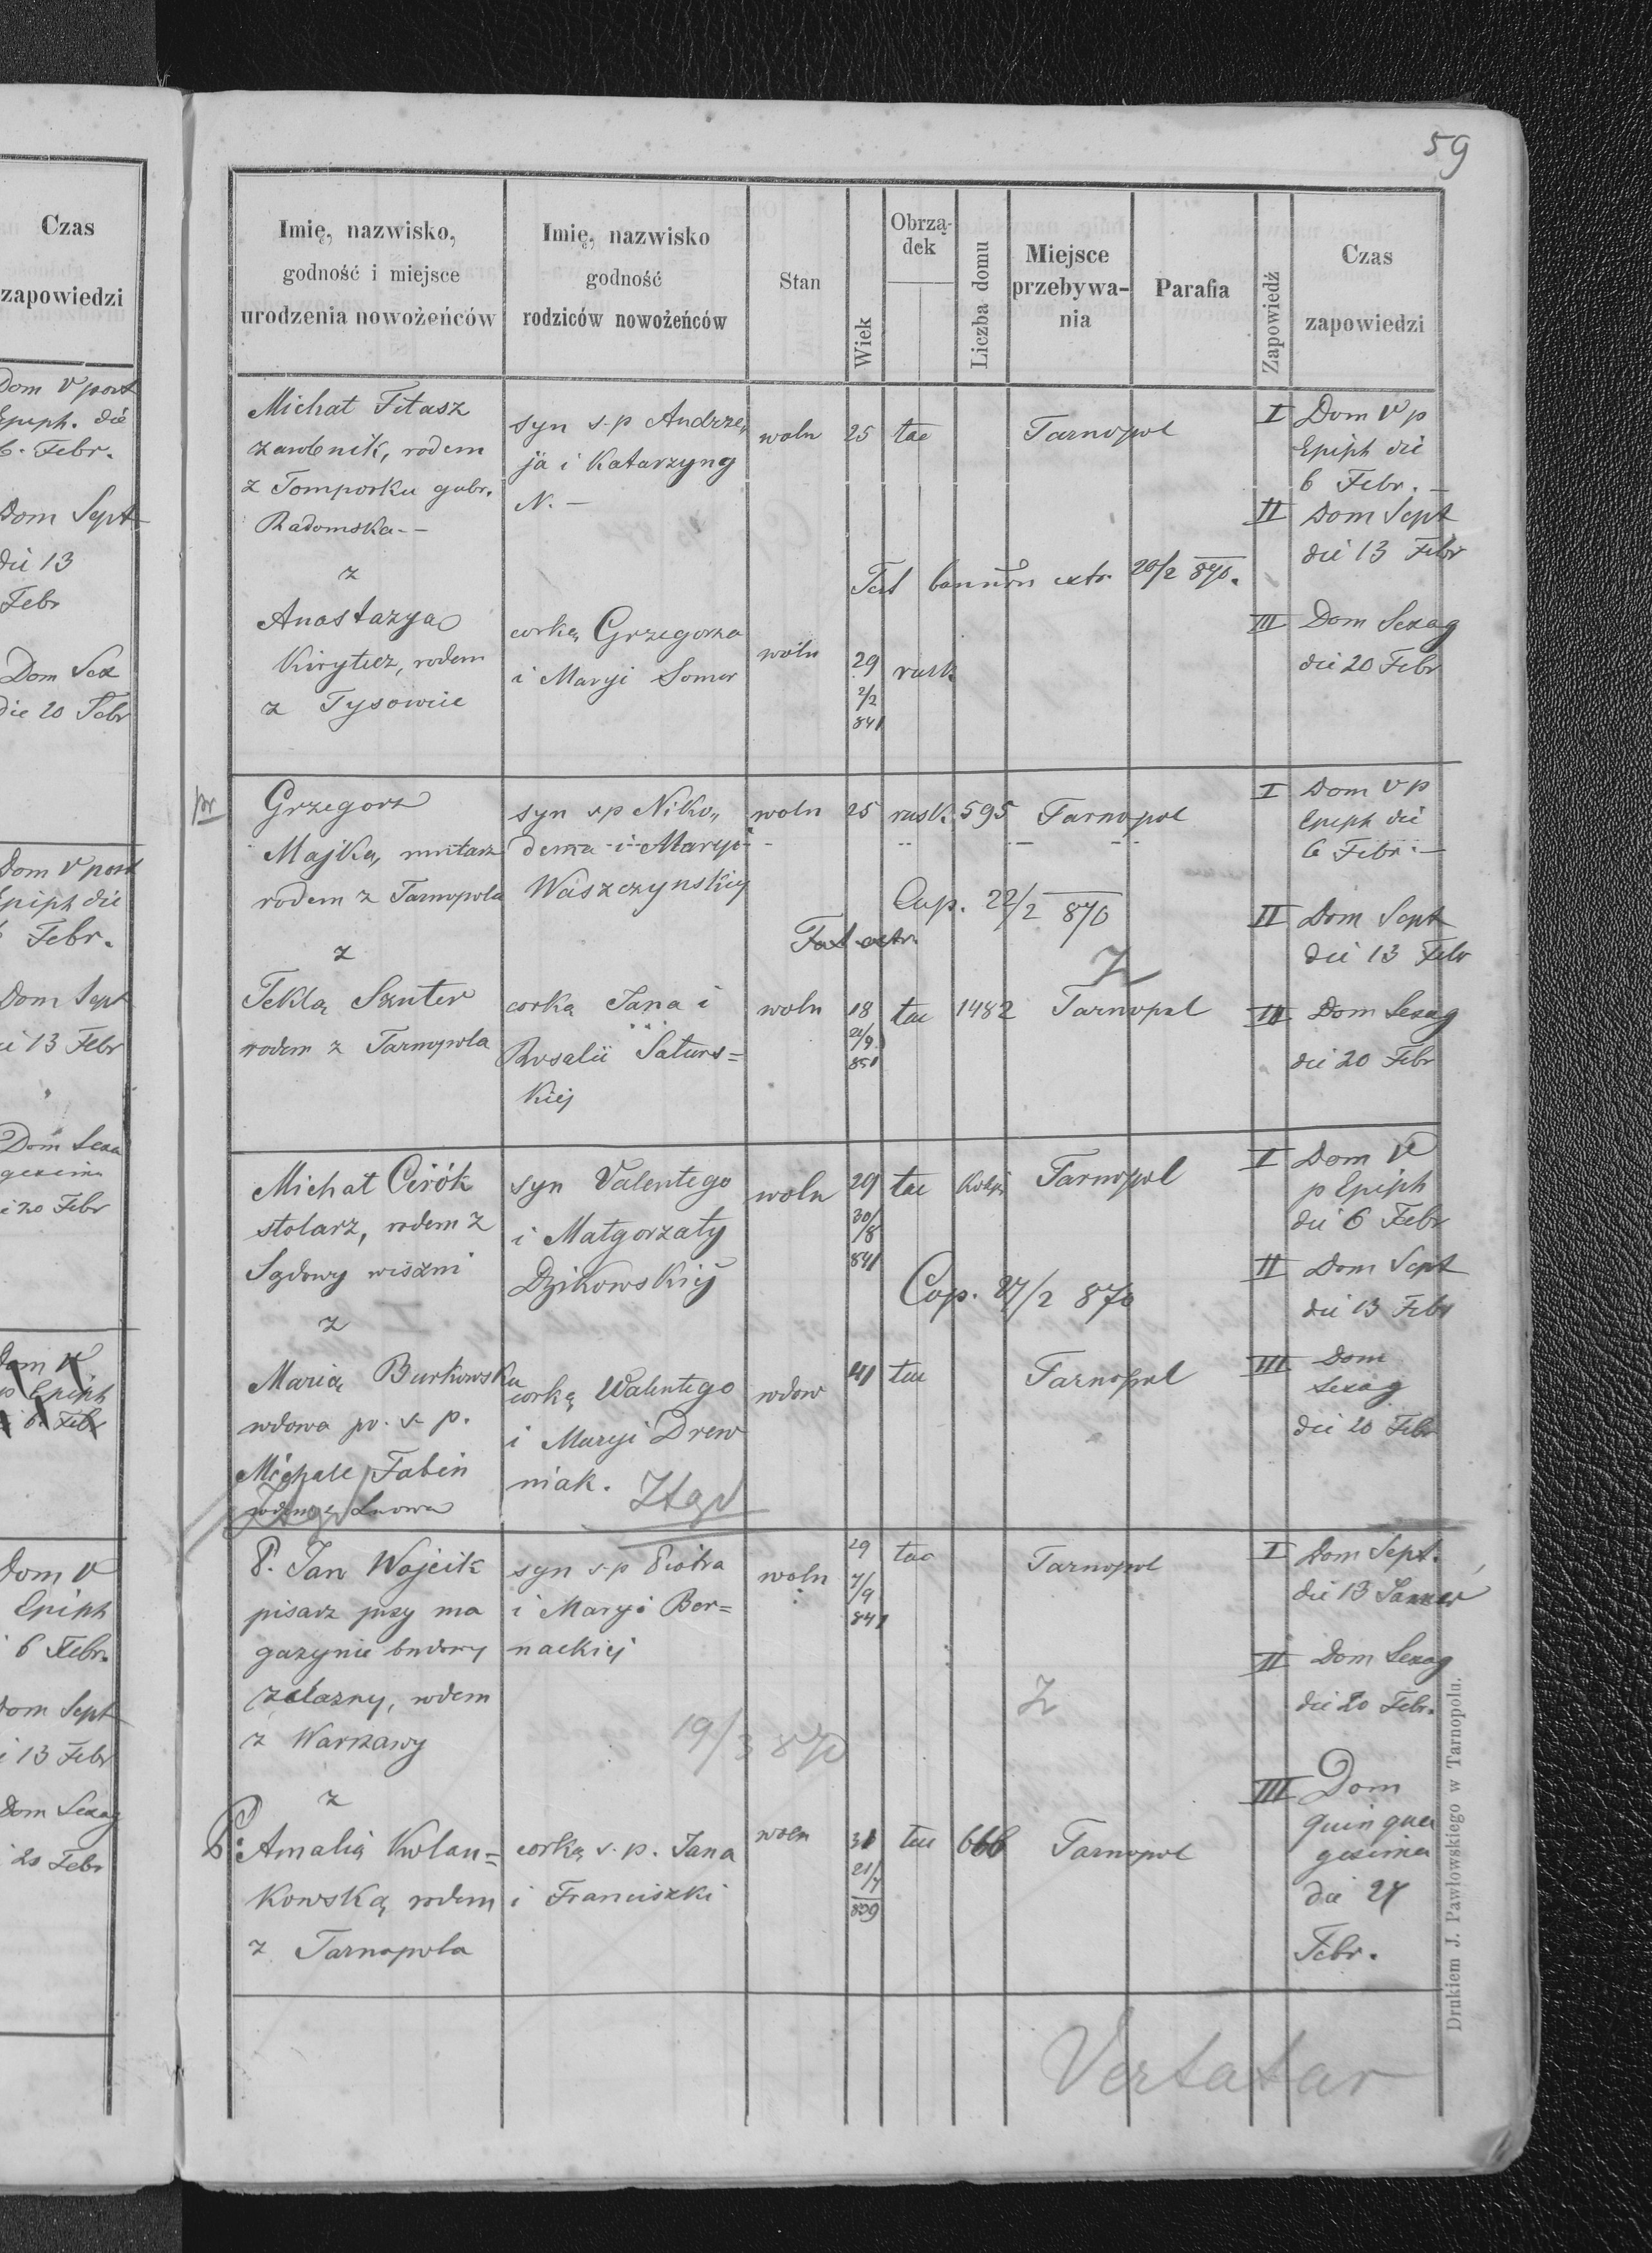 Czas
zapowiedzi
Dom V post
Epiph. die
6. Febr.
Dom Sept
die 13
Febr
Dom Sex
die 20 Febr
Dom V post
Epiph die
Febr.
Dom Sept
13 Febr
Dom Sexa
gesima
20 Febr
Dom V
p Epiph
6. Febr
Dom V
Epiph
6 Febr.
Dom Sept
13 Febr
Dom Sexag
20 Febr
59
Imię, nazwisko,
godność i miejsce
urodzenia nowożeńców
Imię, nazwisko
godność
rodziców nowożeńców
Stan
Wiek
Obrzą-
dek
Liczba domu
Miejsce
przebywa-
nia
Parafia
Zapowiedź
Czas
zapowiedzi
Michał Fitasz
rodem
z Tomporku gubr.
Radomska -
z
Anastazya
Kirytycz, rodem
z Tysowice
syn s. p Andrze,
ja i Katarzyny
N. -
corką Grzegorza
i Maryi Somer
woln
woln
25
29
2/2
841
łac
rusk.
Tarnopol
Test bannōrū extr. 20/2 870.
I Dom V p
Epiph die
6 Febr. -
II Dom Sept
die 13 Febr
III Dom Sexag
die 20 Febr
pr
Grzegorz
Majka, murarz
rodem z Tarnopola
z
Teklą Szuter
rodem z Tarnopola
syn s p Niko,,
dema i Maryi
Waszczynskiej
corką Jana i
Rosalii Saturs=
kiej
woln
woln
25
18
21/9
851
rusk. 595 Tarnopol
Cop. 22/2 870
Test extr.
Z
łac 1482 Tarnopol
I Dom V p
Epiph die
6 Febr -
II Dom Sept
die 13 Febr
III Dom Sexag
die 20 Febr
Michał Cirók
stolarz, rodem z
Sądowy wiszni
z
Marią Burkowska
wdowa po s. p.
Michale Fabin
rodem z Lwowa
syn Valentego
i Małgorzaty
Dzikowskiej
corką Walentego
i Maryi Drew
niak.
woln
wdow
29
30/8
841
41
łac
łac
Kolej
Tarnopol
Cop. 27/2 870
Tarnopol
I Dom V
p Epiph
die 6 Febr
II Dom Sept
die 13 Febr
III Dom
Sexag
die 20 Febr
P. Jan Wojcik
pisarz przy ma
gazynie budowy
żelazny, rodem
z Warszawy
z
P. Amalią Kolan=
kowską, rodem
z Tarnopola
syn s. p Piotra
i Maryi Ber=
nackiej
19/3 870
corką s. p. Jana
i Franciszki
woln
woln
29
7/9
841
31
21/7
839
łac
łac 666
Tarnopol
Z
Tarnopol
I Dom Sept.
die 13 Januar
II Dom Sexag
die 20 Febr.
III Dom
quinqua
gesima
die 27
Febr.
Vertatur
Drukiem J. Pawłowskiego w Tarnopolu.